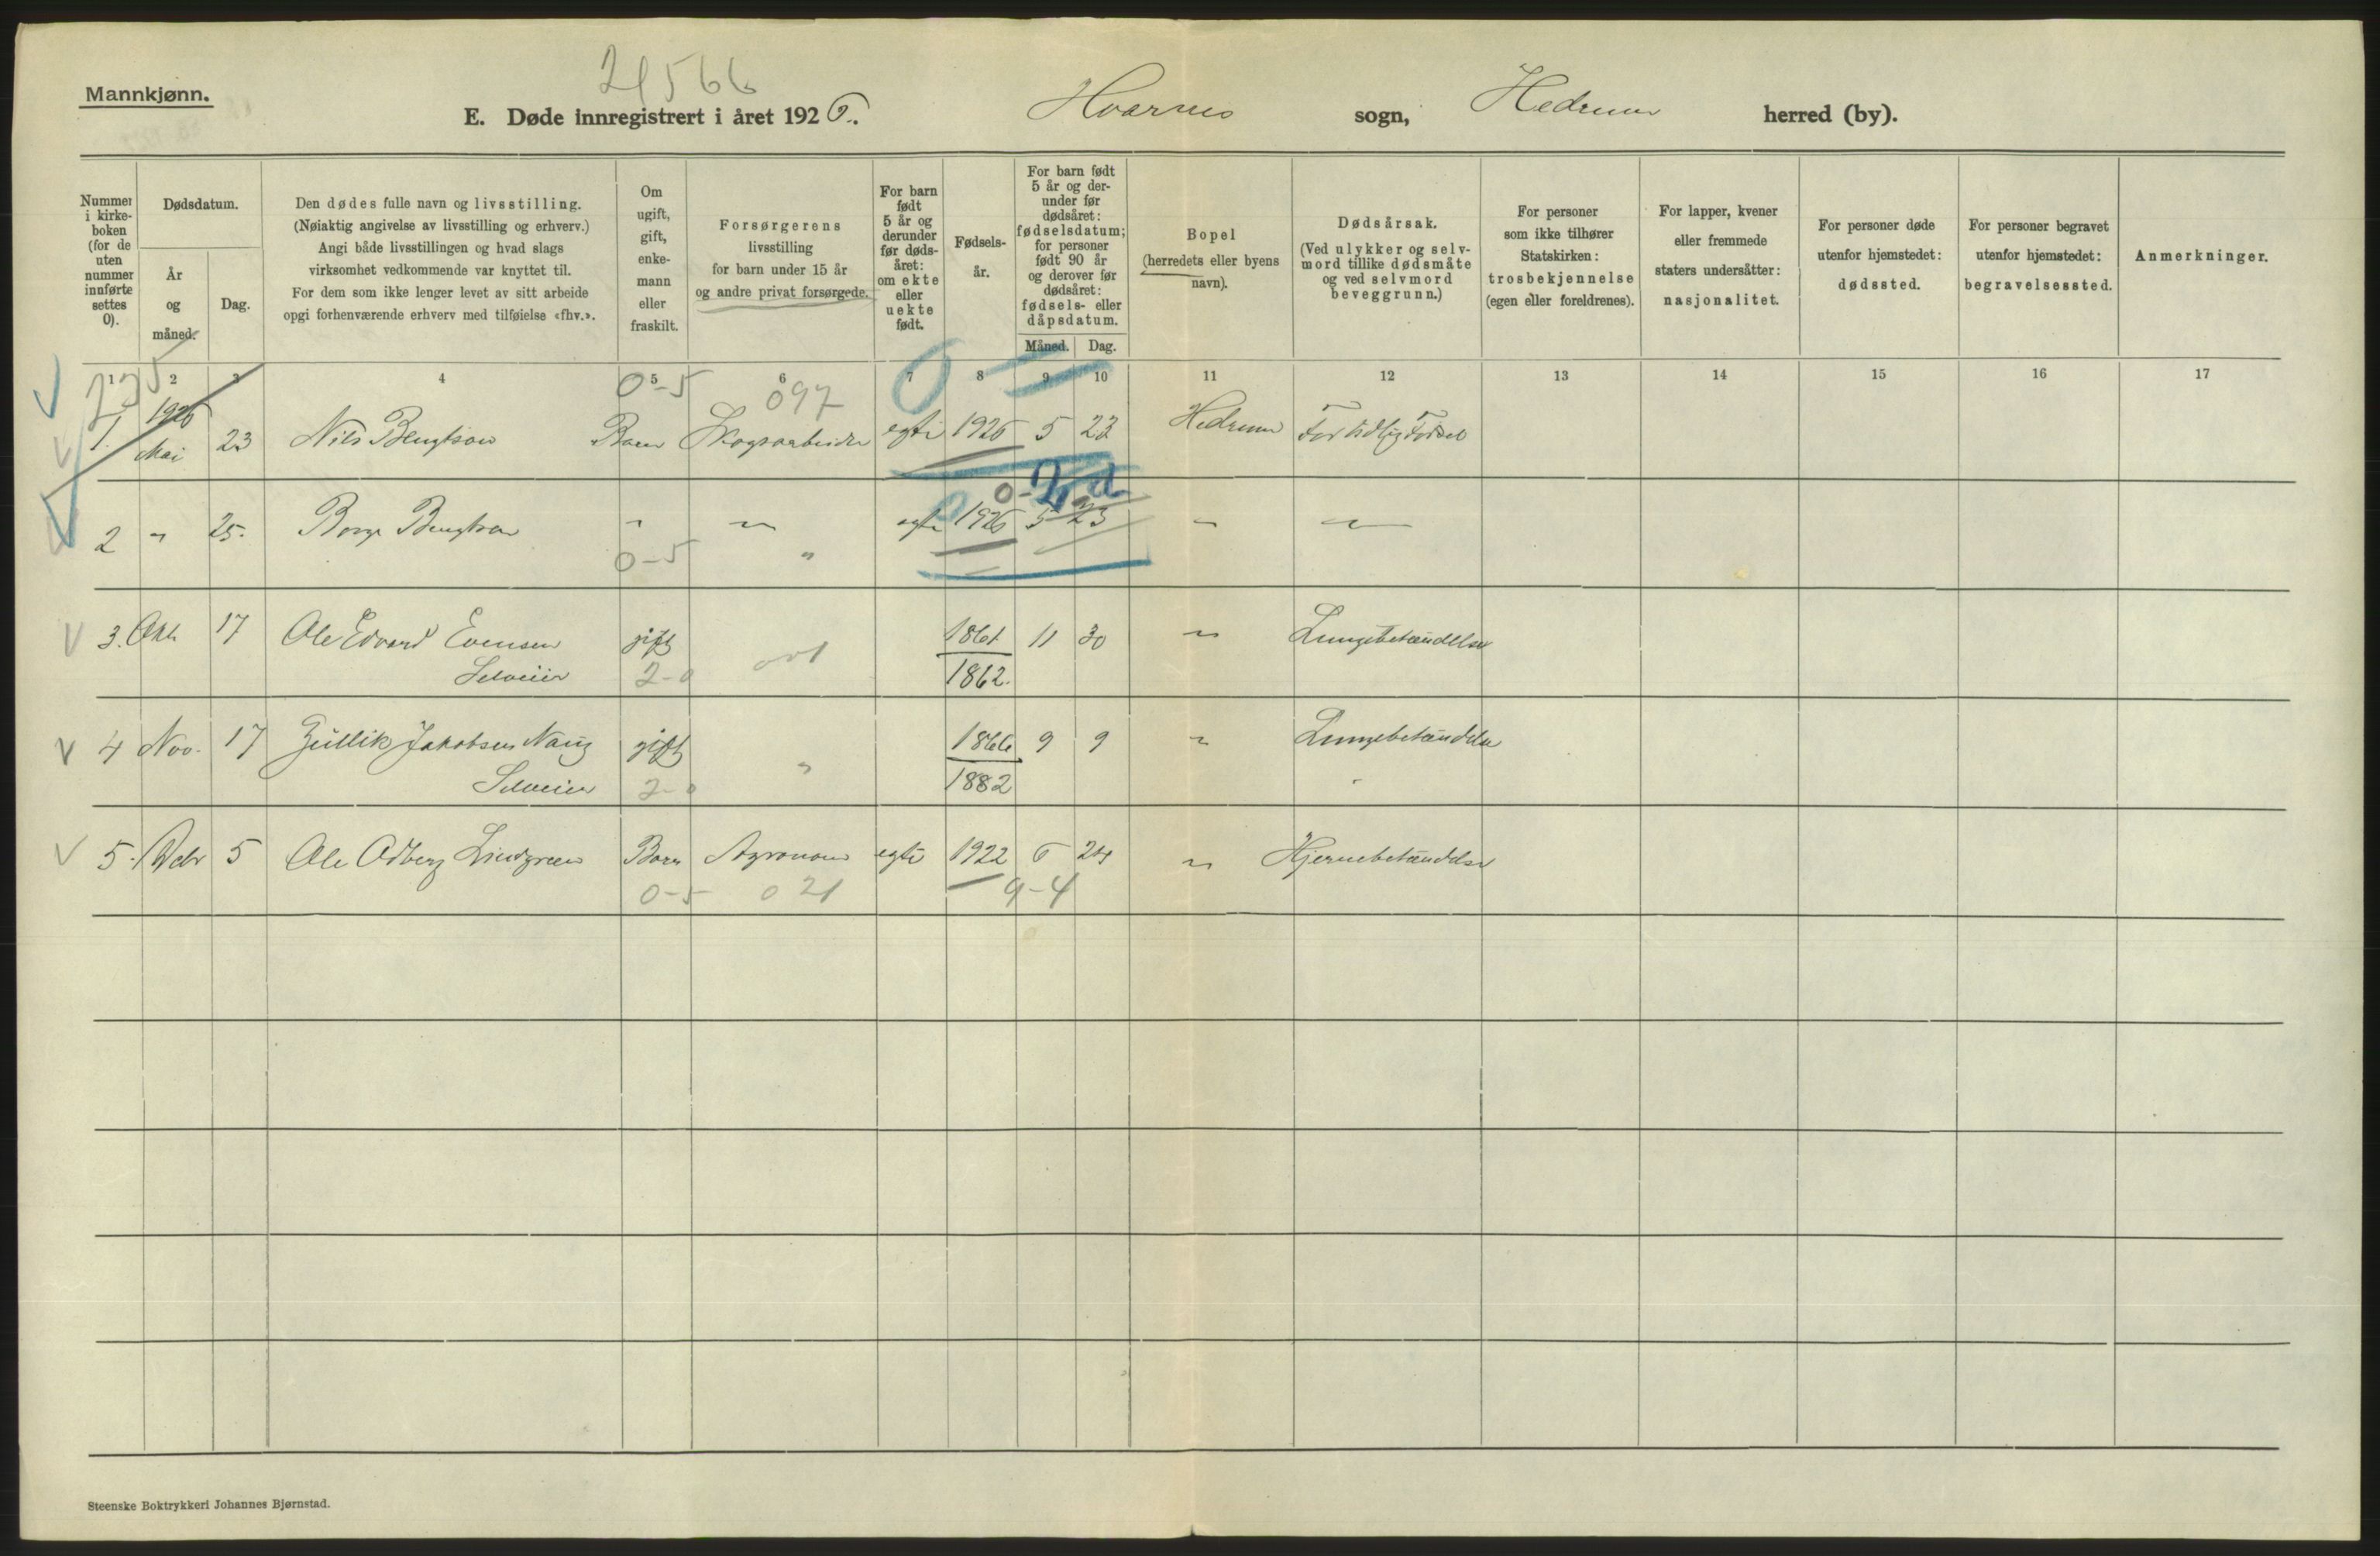 Mannkjønn.
21566
E. Døde innregistrert i året 1926. Hvarnes sogn, Hedrum herred (by).
Nummer i kirkeboken (for de uten nummer innførte settes 0).
Dødsdatum.
År og måned.
Dag.
Den dødes fulle navn og livsstilling.
(Nøiaktig angivelse av livsstilling og erhverv.)
Angi både livsstillingen og hvad slags
virksomhet vedkommende var knyttet til.
For dem som ikke lenger levet av sitt arbeide
opgi forhenværende erhverv med tilføielse «fhv.».
Om ugift, gift, enkemann eller fraskilt.
Forsørgerens
livsstilling
for barn under 15 år
og andre privat forsørgede.
For barn født 5 år og derunder før dødsåret: om ekte eller uekte født.
Fødselsår.
For barn født 5 år og derunder før dødsåret: fødselsdatum; for personer født 90 år og derover før dødsåret: fødsels- eller dåpsdatum.
Måned. Dag.
Bopel
(herredets eller byens
navn).
Dødsårsak.
(Ved ulykker og selvmord tillike dødsmåte og ved selvmord beveggrunn.)
For personer
som ikke tilhører
Statskirken:
trosbekjennelse
(egen eller foreldrenes).
For lapper, kvener
eller fremmede
staters undersåtter:
nasjonalitet.
For personer døde
utenfor hjemstedet:
dødssted.
For personer begravet
utenfor hjemstedet:
begravelsessted.
Anmerkninger.
1 2 3 4 5 6 7 8 9 10 11 12 13 14 15 16 17
235 0-5 097 0
1. 1926 Mai 23 Nils Bengtson Barn Skogsarbeider egte 1926 5 23 Hedrum For tidlig Fødsel
0-2 d
2 " 25. Borge Bengtson " " egte 1926 5 23 " "
0-5 "
3. Okt. 17 Ole Edvard Evensen gift 1861 11 30 " Lungebetændelse
Selveier 2-0 001 1862.
4 Nov. 17 Gullik Jakobsen Naug gift 1866 9 9 " Lungebetændelse
Selveier 2-0 " 1882
5. Debr 5 Ole Odberg Lindgreen Barn Agronom egte 1922 6 24 " Hjernebetændelse
0-5 021 9-4
Steenske Boktrykkeri Johannes Bjørnstad.